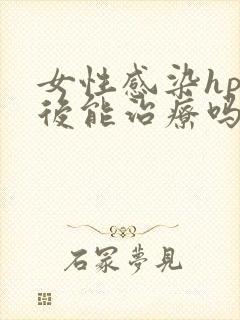 女性感染hp
後能治療嗎
石冢夢見